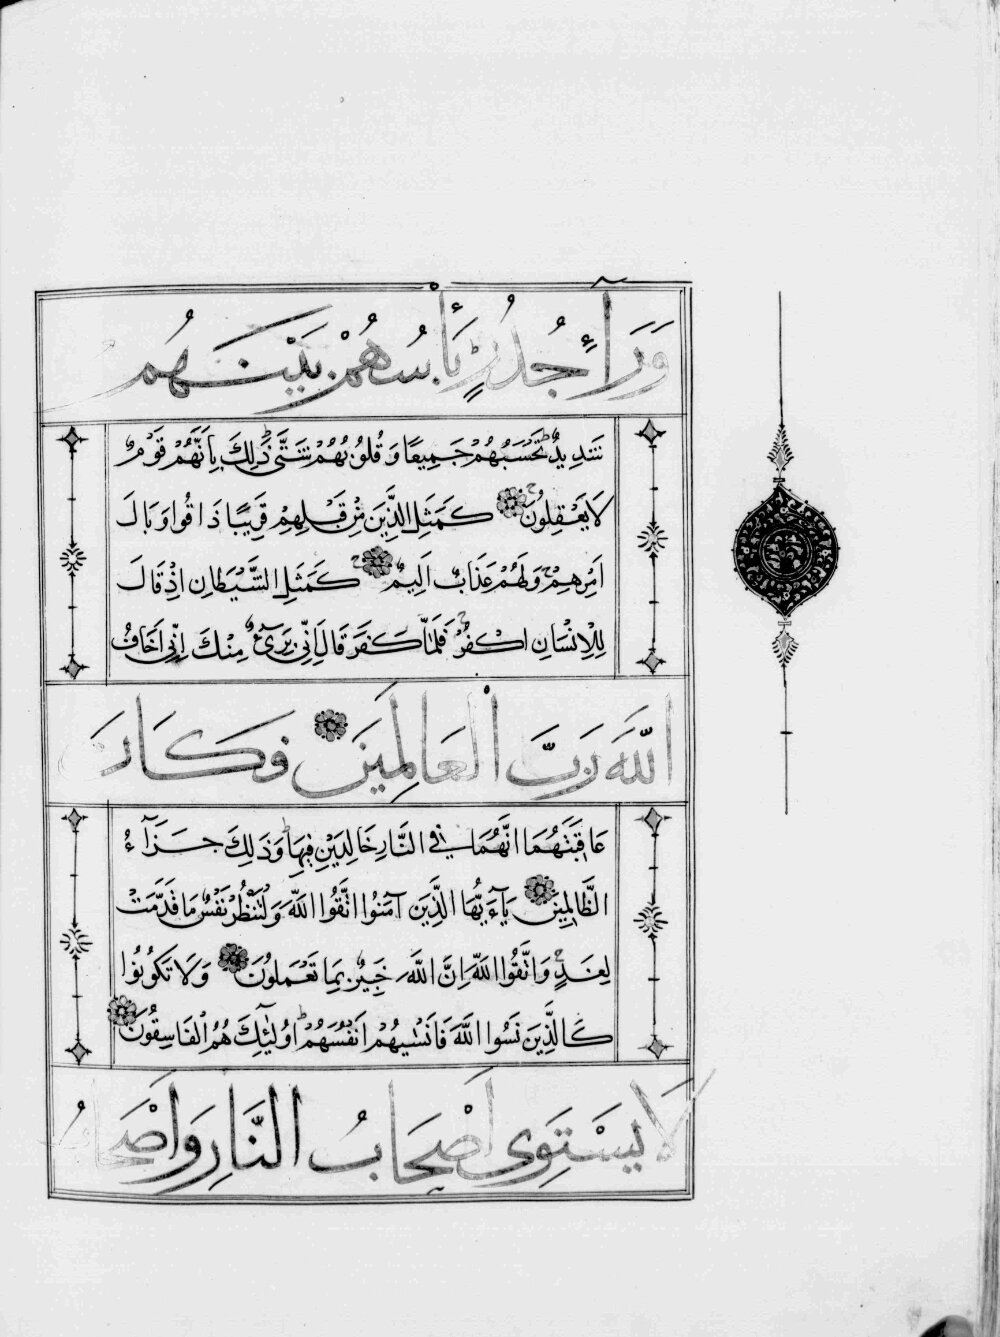 وَرَآءِ جُدُرٍ بَأْسُهُمْ بَيْنَهُمْ
شَدِيدٌ تَحْسَبُهُمْ جَمِيعًا وَقُلُوبُهُمْ شَتَّى ذَلِكَ بِأَنَّهُمْ قَوْمٌ
لَا يَعْقِلُونَ كَمَثَلِ الَّذِينَ مِنْ قَبْلِهِمْ قَرِيبًا ذَاقُوا وَبَالَ
اَمْرِهِمْ وَلَهُمْ عَذَابٌ اَلِيمٌ كَمَثَلِ الشَّيْطَانِ اِذْ قَالَ
لِلْاِنْسَانِ اكْفُرْ فَلَمَّا كَفَرَ قَالَ اِنِّى بَرِىءٌ مِنْكَ اِنِّى اَخَافُ
اللَّهَ رَبَّ الْعَالَمِينَ فَكَانَ
عَاقِبَتَهُمَا اَنَّهُمَا فِى النَّارِ خَالِدَيْنِ فِيهَا وَذَلِكَ جَزَآءُ
الظَّالِمِينَ يَآءَيُّهَا الَّذِينَ آمَنُوا اتَّقُوا اللَّهَ وَلْتَنْظُرْ نَفْسٌ مَا قَدَّمَتْ
لِغَدٍ وَاتَّقُوا اللَّهَ اِنَّ اللَّهَ خَبِيرٌ بِمَا تَعْمَلُونَ وَلَا تَكُونُوا
كَالَّذِينَ نَسُوا اللَّهَ فَاَنْسٰيهُمْ اَنْفُسَهُمْ اُولٰٓئِكَ هُمُ الْفَاسِقُونَ
لَا يَسْتَوِى اَصْحَابُ النَّارِ وَاَصْحَابُ